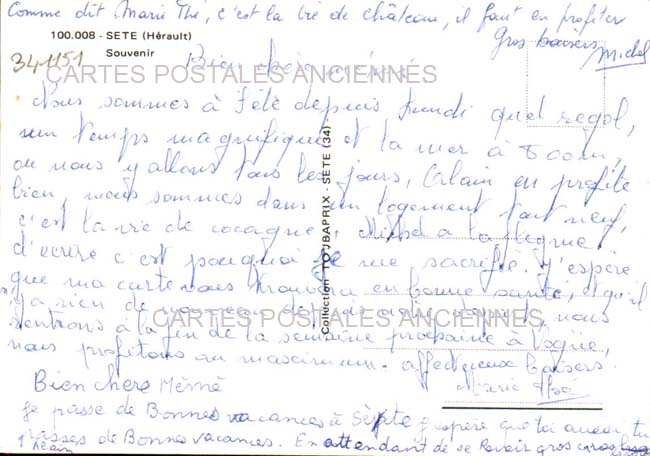 Comme dit Marie Thé, c'est la vie de château, il faut en profiter
Gros baisers
Michel
100.008 - SETE (Hérault)
Souvenir
341151
Bien chère mémé
CARTES POSTALES ANCIENNES
Nous sommes à Sète depuis lundi quel régal,
un temps magnifique et la mer à 800m,
ou nous y allons tous les jours, Alain en profite
bien, nous sommes dans un logement tout neuf,
c'est la vie de cocagne, Michel a la flegme
d'ecrire c'est pourquoi je me sacrifie. J'espère
que ma carte vous trouvera en bonne santé, et qu'il
n'y a rien de depuis, nous
CARTES POSTALES ANCIENNES
rentrons à la fin de la semaine prochaine à Vogüe,
nous profitons au maximum. affectueux baisers.
Marie Thé
Collection TOUBAPRIX - SETE (34)
Bien chere Mémé
je passe de Bonnes vacances à Sète j'espère que toi aussi, tu
passes de Bonnes vacances. En attendant de se revoir gros gros
Alain